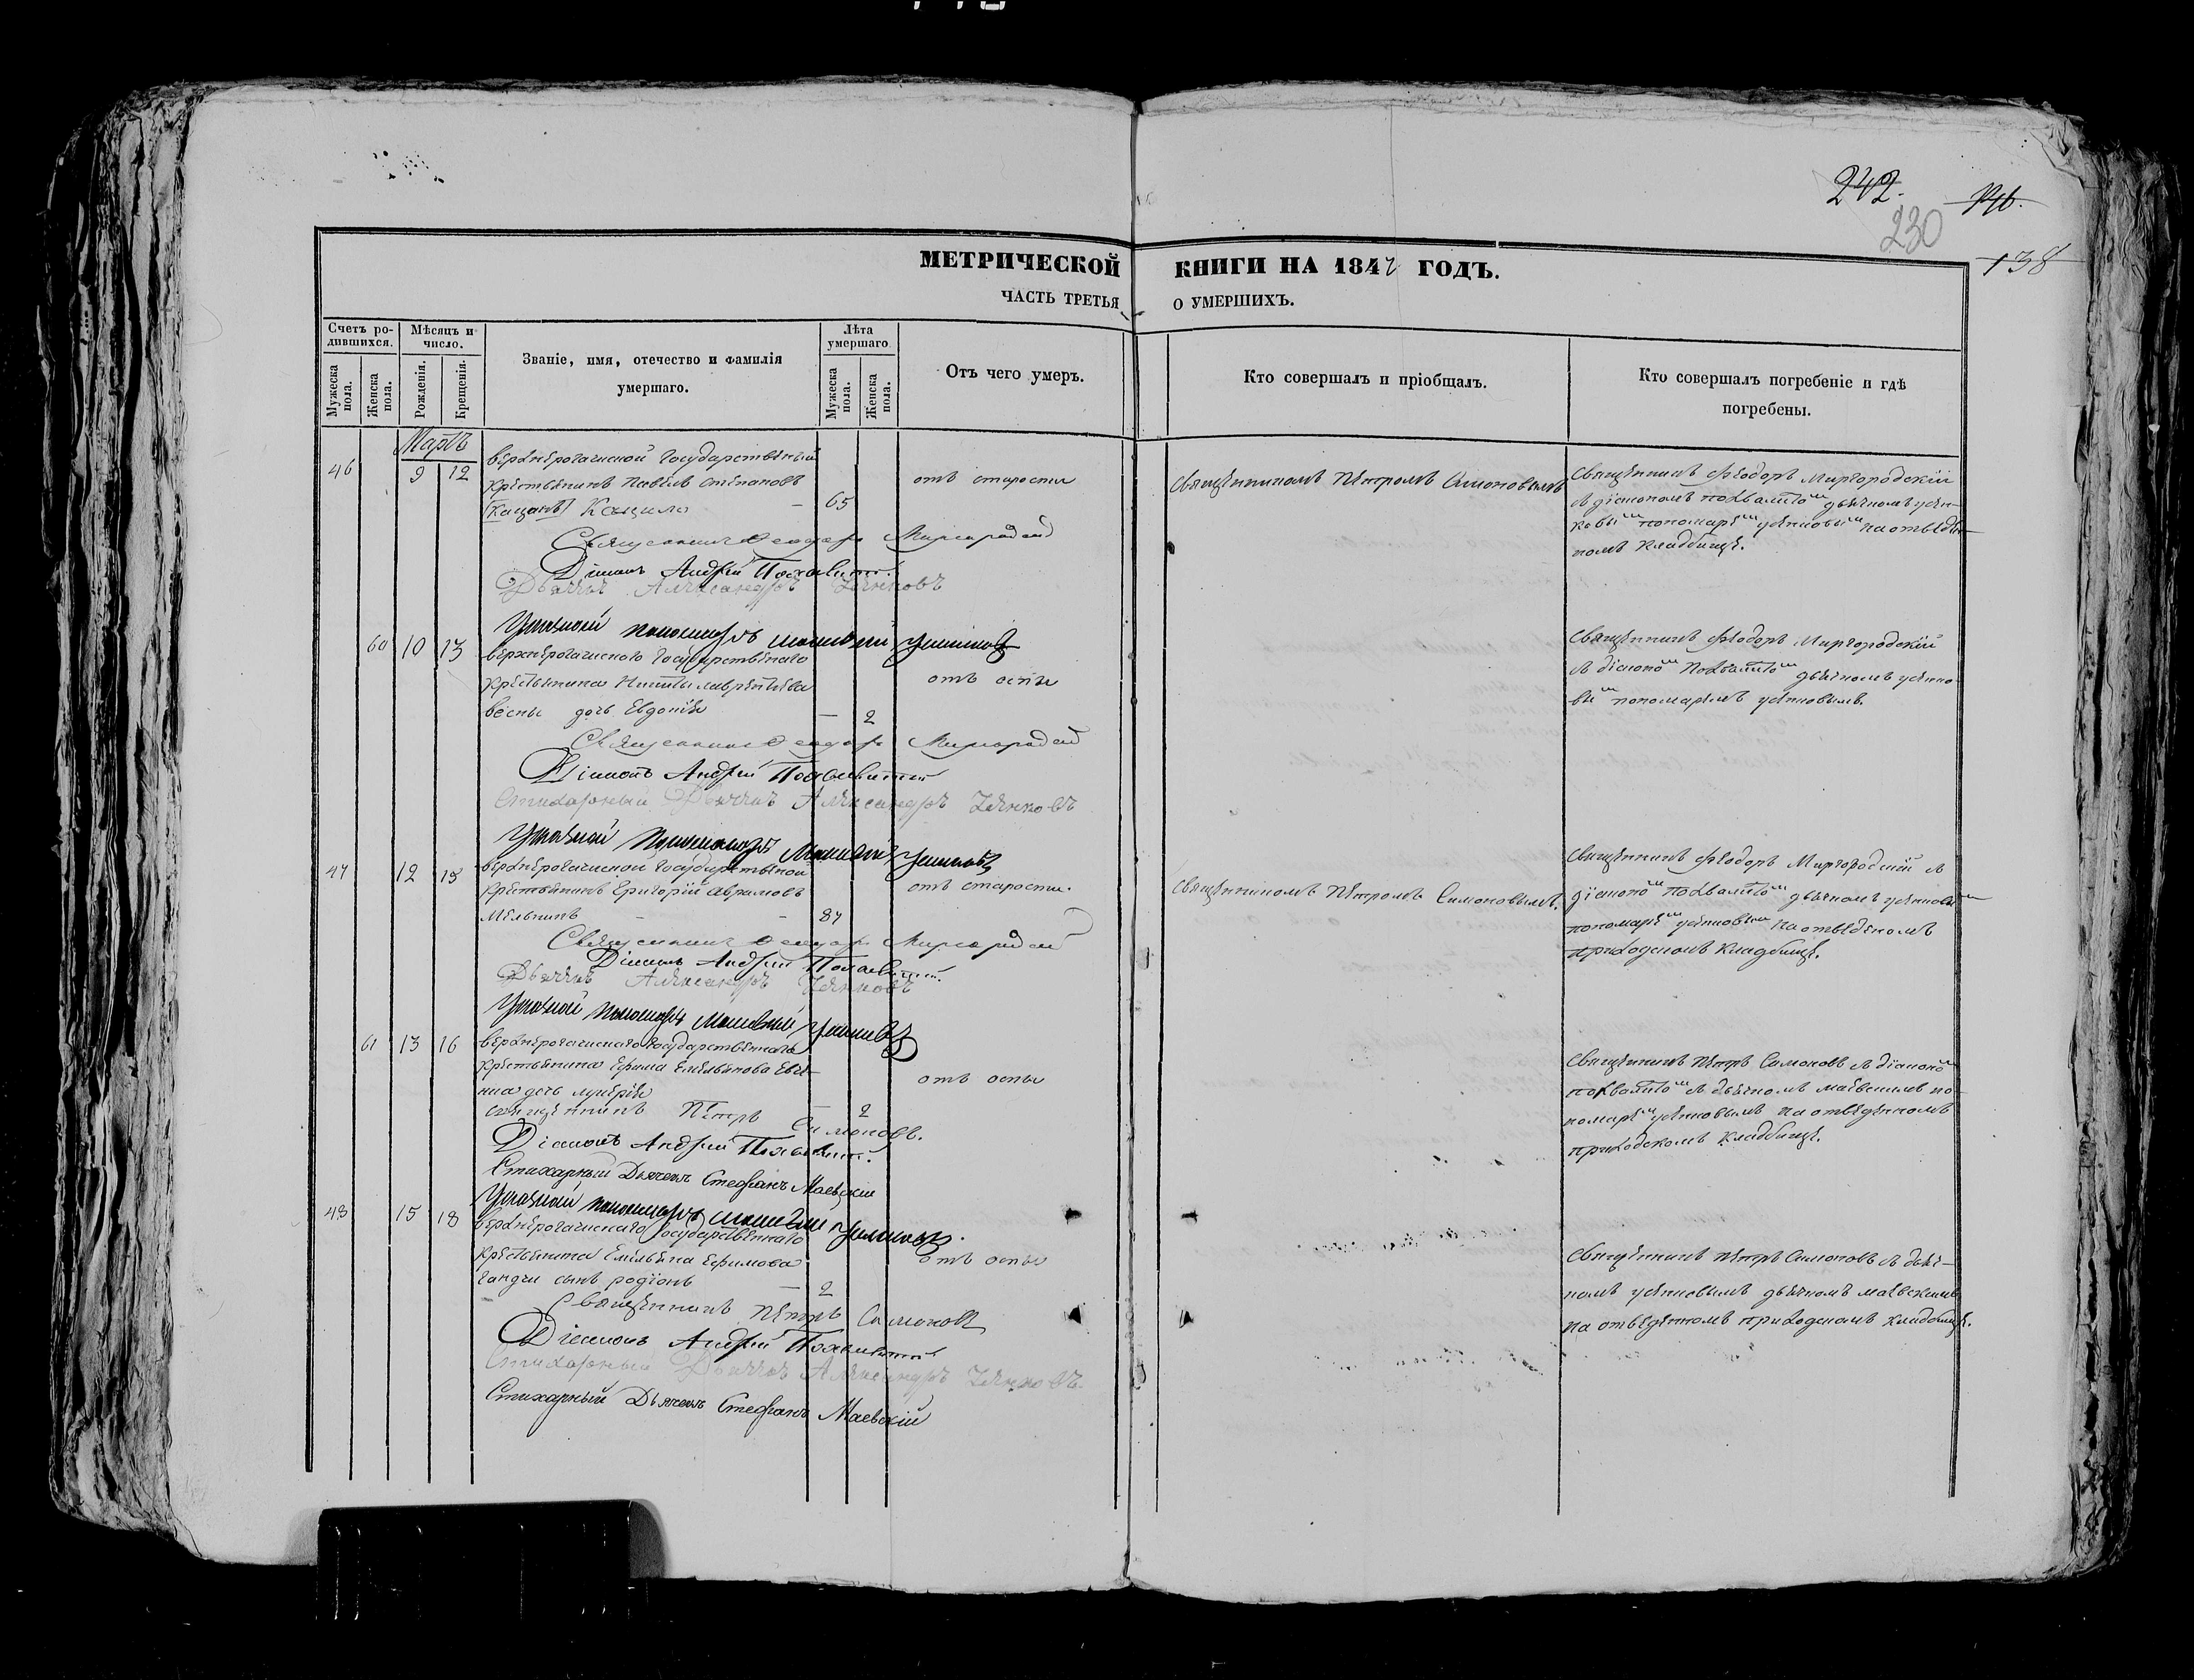 242.
230
138
МЕТРИЧЕСКОЙ КНИГИ НА 1842 ГОДЪ.
ЧАСТЬ ТРЕТЬЯ О УМЕРШИХЪ.
Счетъ ро-
дившихся.
Мужеска пола.
Женска пола.
Мѣсяцъ и
число.
Рожденія.
Крещенія.
Званіе, имя, отечество и фамилія
умершаго.
Лѣта
умершаго
Мужеска пола.
Женска пола.
Отъ чего умеръ.
Кто совершалъ и пріобщалъ.
Кто совершалъ погребеніе и гдѣ
погребены.
Мартъ
46 9 12
верхнерогачиской государственый
крестьянинъ Павелъ Степановъ
[Кацанъ] Кацило — 65
отъ старости
Священникомъ Петромъ Симоновымъ
Священникъ Феодоръ Миргородскій
с діакономъ Похвалито дьячкомъ
пономаре на отведен-
номъ кладбище.
Священникъ Феодоръ Миргородскій
Діаконъ Андрей Похвалитій
Дьячекъ Александръ
Указной пономарь
60 10 13
верхнерогачиского государственаго
крестьянина Никиты лаврентьева
весны дочь Евдокія — 2
отъ оспы
Священникъ Феодоръ Миргородскій
с діаконо Похвалито дьячкомъ
пономаремъ
Священникъ Феодоръ Миргородскій
Діаконъ Андрей Похвалитій
Стихарный Дьячекъ Александръ
Указной Пономарь
47 12 15
верхнерогачиской государственой
крестьянинъ Григорій Аврамовъ
Мельникъ — — 87
отъ старости.
Священникомъ Петромъ Симоновымъ.
Священникъ Феодоръ Миргородскій с
діаконо Похвалито дьячкомъ
пономаре на отведеномъ
приходскомъ кладбище.
Священникъ Феодоръ Миргородскій
Діаконъ Андрей Похвалитій.
Дьячекъ Александръ
Указной Пономарь
61 13 16
верхнерогачискаго государственаго
крестьянина Ефима Емельянова Евсе-
нка дочь лукерія — 2
отъ оспы
Священникъ Петръ Симоновъ с діаконо
Похвалито с дьячкомъ маевскимъ по-
номаре на отведенномъ
приходскомъ кладбище.
священникъ Петръ Симоновъ.
Діаконъ Андрей Похвалитій.
Стихарный Дьячекъ Стефанъ Маевскій
Указной пономарь
48 15 18
верхнерогачискаго государственнаго
крестьянина Емельяна Ефимова
ганджи сынъ родіонъ — 2
отъ оспы
Священникъ Петръ Симоновъ с дьяч-
комъ дьячкомъ маевскимъ
на отведенномъ приходскомъ кладбище.
Священникъ Петръ Симоновъ
Діаконъ Андрей Похвалитій
Стихарный Дьячекъ Александръ
Стихарный Дьячекъ Стефанъ Маевскій